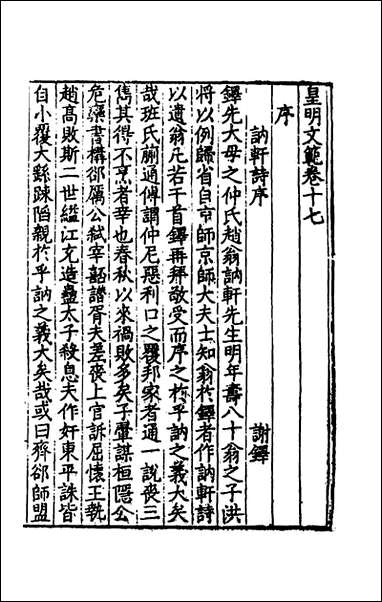 皇明文範卷十七
序
訥軒詩序 謝鐸
鐸先大母之仲氏趙翁訥軒先生明年壽八十翁之子洪
將以例歸省自京師京師大夫士知翁於鐸者作訥軒詩
以遺翁凡若干首鐸再拜敬受而序之於乎訥之義大矣
哉班氏蒯通傳謂仲尼惡利口之覆邦家者通一說喪三
雋其得不亨者幸也春秋以來禍敗多矣子翬謀桓隱公
危欒書構郤厲公弒宰嚭譖胥夫差喪上官訴屈懷王執
趙高敗斯二世縊江充造蠱太子殺息夫作奸東平誅皆
自小覆大繇疎陷親於乎訥之義大矣哉或曰齊郤師盟